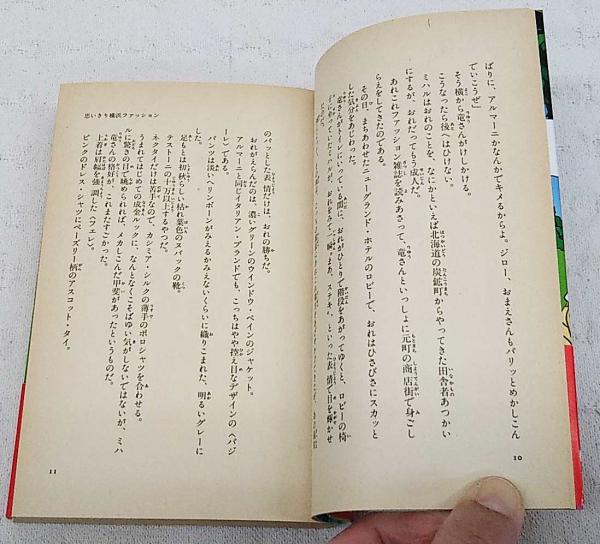 ばりに、アルマーニかなんかでキメるからよ。ジロー、おまえさんもバリッとめかしこん
でいこうぜ」
そう横から竜さんがけしかける。
こうなったら後へはひけない。
ミハルはおれのことを、なにかといえば北海道の炭鉱町からやってきた田舎者あつかい
にするが、おれだってもう成人だ。
あれこれファッション雑誌を読みあさって、竜さんといっしょに元町の商店街で身ごし
らえをしてきたのである。
その日、まちあわせたニューグランド・ホテルのロビーで、おれはひさびさにスカッと
した気分をあじわった。
竜さんがトイレにいっている間に、おれがひとりで階段をあがってゆくと、ロビーの椅
ミハルが、おれをみて、一瞬、まあ、ステキ、といった表情で目を輝かせ
10
思いきり横浜ファッション
のパッとした表情だけは、おれの勝ちだ。
おれがえらんだのは、濃いグリーンのウインドウ・ペインのジャケット。
アルマーニと同じイタリアン・ブランドでも、こっちはやや控え目なデザインの〈バジ
ーレ〉である。
パンツは淡いヘリンボーンがみえるかみえないくらいに織りこまれた、明るいグレーに
した。
足もとは初秋らしい枯れ葉色のヌバックの靴。
テストーニの十万以上するやつだ。
ネクタイだけは苦手なので、カシミア・シルクの薄手のポロシャツを合わせる。
うまれてはじめての成金ルックに、なんとなくこそばゆい気がしないではないが、ミハ
ルに驚きの目で眺められれば、メカしこんだ甲斐があったというものだ。
竜さんの格好が、これまたすごかった。
上着は肩幅を強調した〈フェレ〉。
ピンクのドレス・シャツにペーズリー柄のアスコット・タイ。
11